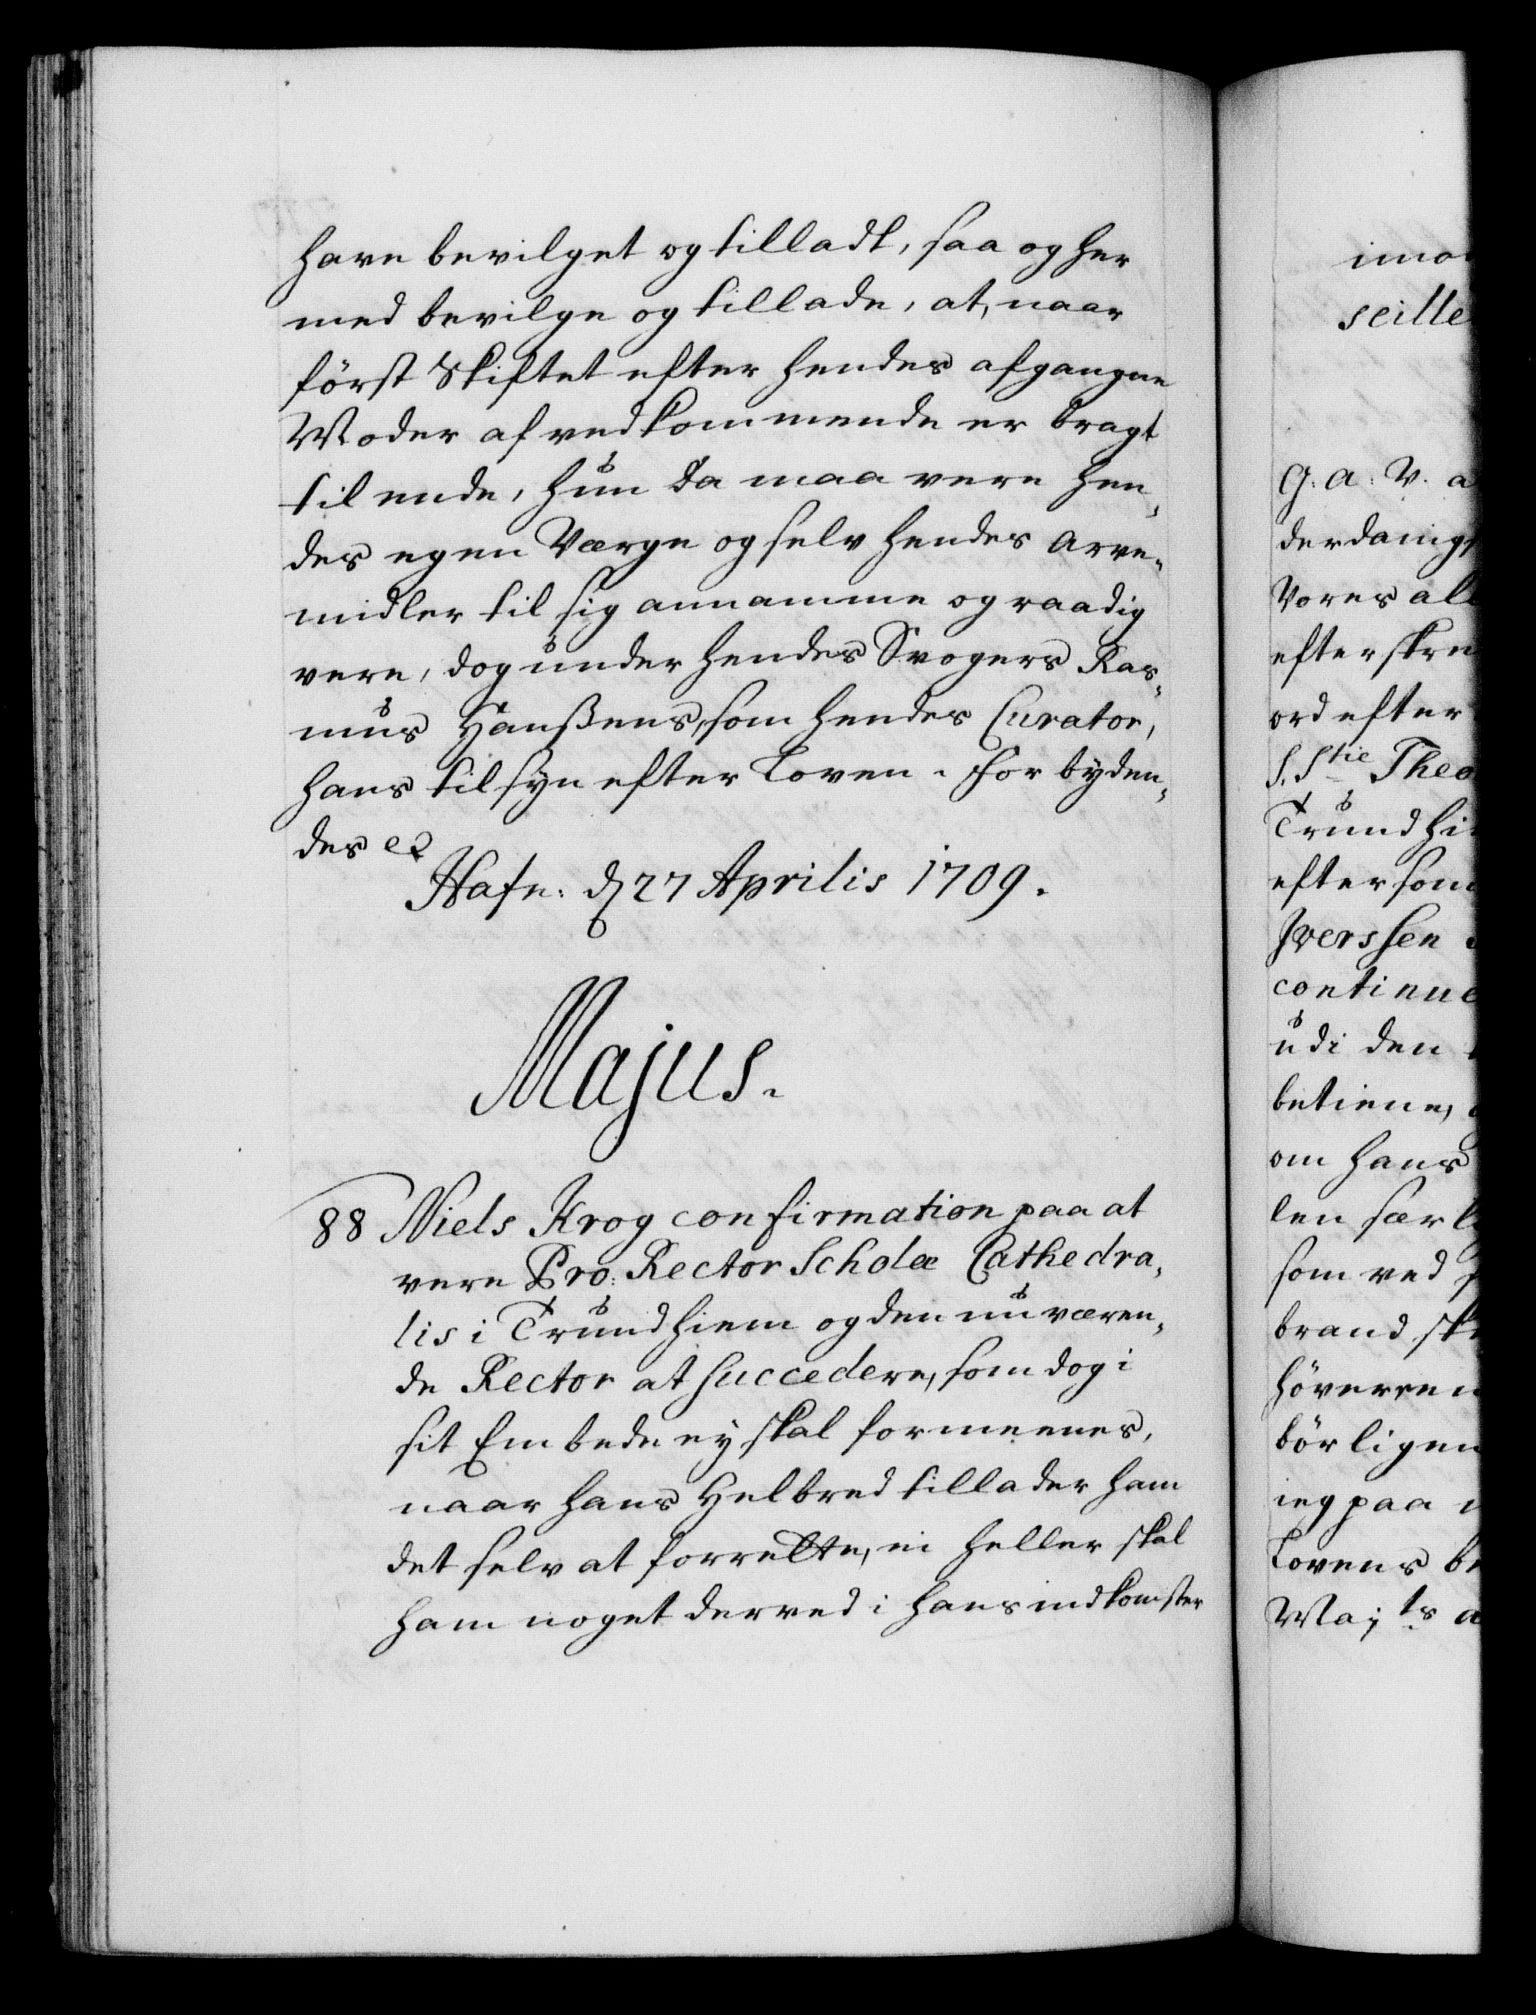 have bevilget og tilladt, saa og her
med bevilge og tillade, at, naar
först Skiftet efter hendes afgangne
Moder af vedkommende er bragt
til ende, hun da maa vere hen,
des egen Værge og selv hendes Arve,
midler til sig annamme og raadig
vere, dog under hendes Svogers Ras,
mus Hanßens, som hendes Curator,
hans tilsyn efter Loven. Forbyden,
des
Hafn: d 27 Aprilis 1709.
Majus.
88 Niels Krog confirmation paa at
vere Pro: Rector Scholæ Cathedra,
lis i Trundhiem og den nu væren,
de Rector at succedere, som dog i
sit Embede ey skal formeenes,
naar hans Helbred tillader ham
det selv at forrette, ei heller skal
ham noget derved i hans indkomster
imo
seille
G. A. V. a
derdanigs
Vores all
efterskre
ord efter
S. Stie Theo
Trundhi
eftersom
Iverssen
continue
udi den
betiene,
om hans
len særl
som ved
brand sk
höveren
börligen
ieg paa
Lovens be
Majts a